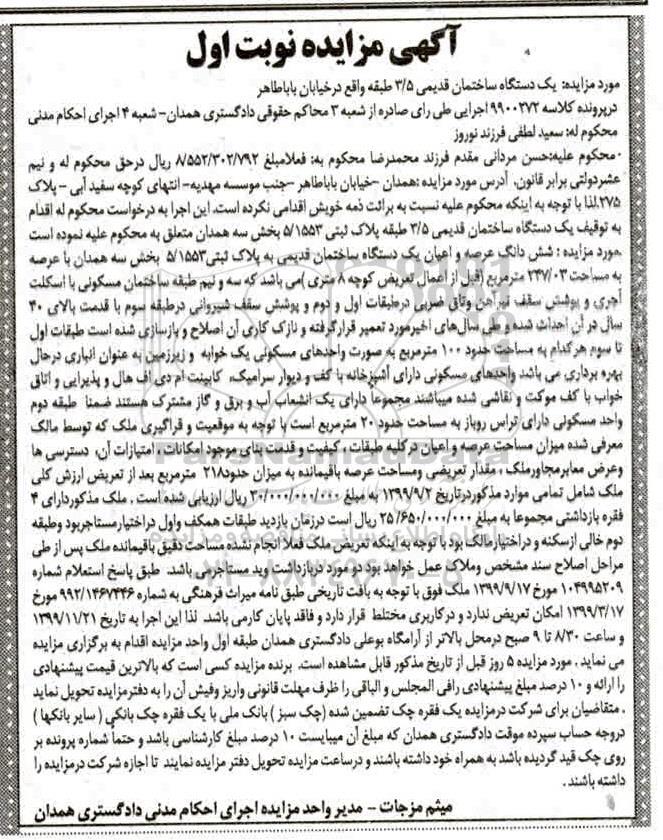 آگهی مزایده نوبت اول
مورد مزایده: یک دستگاه ساختمان قدیمی ۳/۵ طبقه واقع درخیابان باباطاهر
درپرونده کلاسه ۹۹۰۰۲۷۲ اجرایی طی رای صادره از شعبه ۳ محاکم حقوقی دادگستری همدان– شعبه ۴ اجرای احکام مدنی
محکوم له: سعید لطفی فرزند نوروز
محکوم علیه:حسن مردانی مقدم فرزند محمدرضا محکوم به: فعلامبلغ ۸/۵۵۲/۳۰۲/۷۹۲ ریال درحق محکوم له و نیم
عشردولتی برابر قانون، آدرس مورد مزایده :همدان –خیابان باباطاهر –جنب موسسه مهدیه– انتهای کوچه سفید آبی – پلاک
۲۷۵.لذا با توجه به اینکه محکوم علیه نسبت به برائت ذمه خویش اقدامی نکرده است، این اجرا به درخواست محکوم له اقدام
به توقیف یک دستگاه ساختمان قدیمی ۳/۵ طبقه پلاک ثبتی ۵/۱۵۵۳ بخش سه همدان متعلق به محکوم علیه نموده است
.مورد مزایده : شش دانگ عرصه و اعیان یک دستگاه ساختمان قدیمی به پلاک ثبتی۵/۱۵۵۳ بخش سه همدان با عرصه
به مساحت ۲۴۷/۰۳ مترمربع (قبل از اعمال تعریض کوچه ۸ متری )می باشد که سه و نیم طبقه ساختمان مسکونی با اسکلت
آجری و پوشش سقف تیرآهن وتاق ضربی درطبقات اول و دوم و پوشش سقف شیروانی درطبقه سوم با قدمت بالای ۴۰
سال در آن احداث شده و طی سال‌های اخیرمورد تعمیر قرارگرفته و نازک کاری آن اصلاح و بازسازی شده است طبقات اول
تا سوم هرکدام به مساحت حدود ۱۰۰ مترمربع به صورت واحدهای مسکونی یک خوابه و زیرزمین به عنوان انباری درحال
بهره برداری می باشد واحدهای مسکونی دارای آشپزخانه با کف و دیوار سرامیک، کابینت ام دی اف هال و پذیرایی و اتاق
خواب با کف موکت و نقاشی شده میباشند مجموعاً دارای یک انشعاب آب و برق و گاز مشترک هستند ضمنا طبقه دوم
واحد مسکونی دارای تراس روباز به مساحت حدود ۲۰ مترمربع است با توجه به موقعیت و قراگیری ملک که توسط مالک
معرفی شده میزان مساحت عرصه و اعیان درکلیه طبقات ، کیفیت و قدمت بنای موجود امکانات ، امتیازات آن، دسترسی ها
وعرض معابرمجاورملک ، مقدار تعریضی ومساحت عرصه باقیمانده به میزان حدود۲۱۸ مترمربع بعد از تعریض ارزش کلی
ملک شامل تمامی موارد مذکوردرتاریخ ۱۳۹۹/۹/۲ به مبلغ ۳۰/۰۰۰/۰۰۰/۰۰۰ ریال ارزیابی شده است . ملک مذکوردارای ۴
فقره بازداشتی مجموعا به مبلغ ۲۵/۶۵۰/۰۰۰/۰۰۰ ریال است درزمان بازدید طبقات همکف واول دراختیارمستاجربود وطبقه
دوم خالی ازسکنه و دراختیارمالک بود با توجه به اینکه تعریض ملک فعلا انجام نشده مساحت دقیق باقیمانده ملک پس از طی
مراحل اصلاح سند مشخص وملاک عمل خواهد بود دو مورد درباردداشت وید مستاجرمی باشد. طبق پاسخ استعلام شماره
۱۰۴۹۹۵۲۰۹ مورخ ۱۳۹۹/۹/۱۷ ملک فوق با توجه به بافت تاریخی طبق نامه میراث فرهنگی به شماره ۹۹۲/۱۴۶۷۴۴۶ مورخ
۱۳۹۹/۳/۱۷ امکان تعریض ندارد و درکاربری مختلط قرار دارد و فاقد پایان کارمی باشد. لذا این اجرا به تاریخ ۱۳۹۹/۱۱/۲۱
و ساعت ۸/۳۰ تا ۹ صبح درمحل بالاتر از آرامگاه بوعلی دادگستری همدان طبقه اول واحد مزایده اقدام به برگزاری مزایده
می نماید . مورد مزایده ۵ روز قبل از تاریخ مذکور قابل مشاهده است. برنده مزایده کسی است که بالاترین قیمت پیشنهادی
را ارائه و ۱۰ درصد مبلغ پیشنهادی رافی المجلس و الباقی را ظرف مهلت قانونی واریز وفیش آن را به دفترمزایده تحویل نماید
. متقاضیان برای شرکت درمزایده یک فقره چک تضمین شده (چک سبز ) بانک ملی با یک فقره چک بانکی ( سایر بانکها )
دروجه حساب سپرده موقت دادگستری همدان که مبلغ آن میبایست ۱۰ درصد مبلغ کارشناسی باشد و حتماً شماره پرونده بر
روی چک قید گردیده باشد به همراه خود داشته باشند و درساعت مزایده تحویل دفتر مزایده نمایند تا اجازه شرکت درمزایده را
داشته باشند .
میثم مزجات – مدیر واحد مزایده اجرای احکام مدنی دادگستری همدان